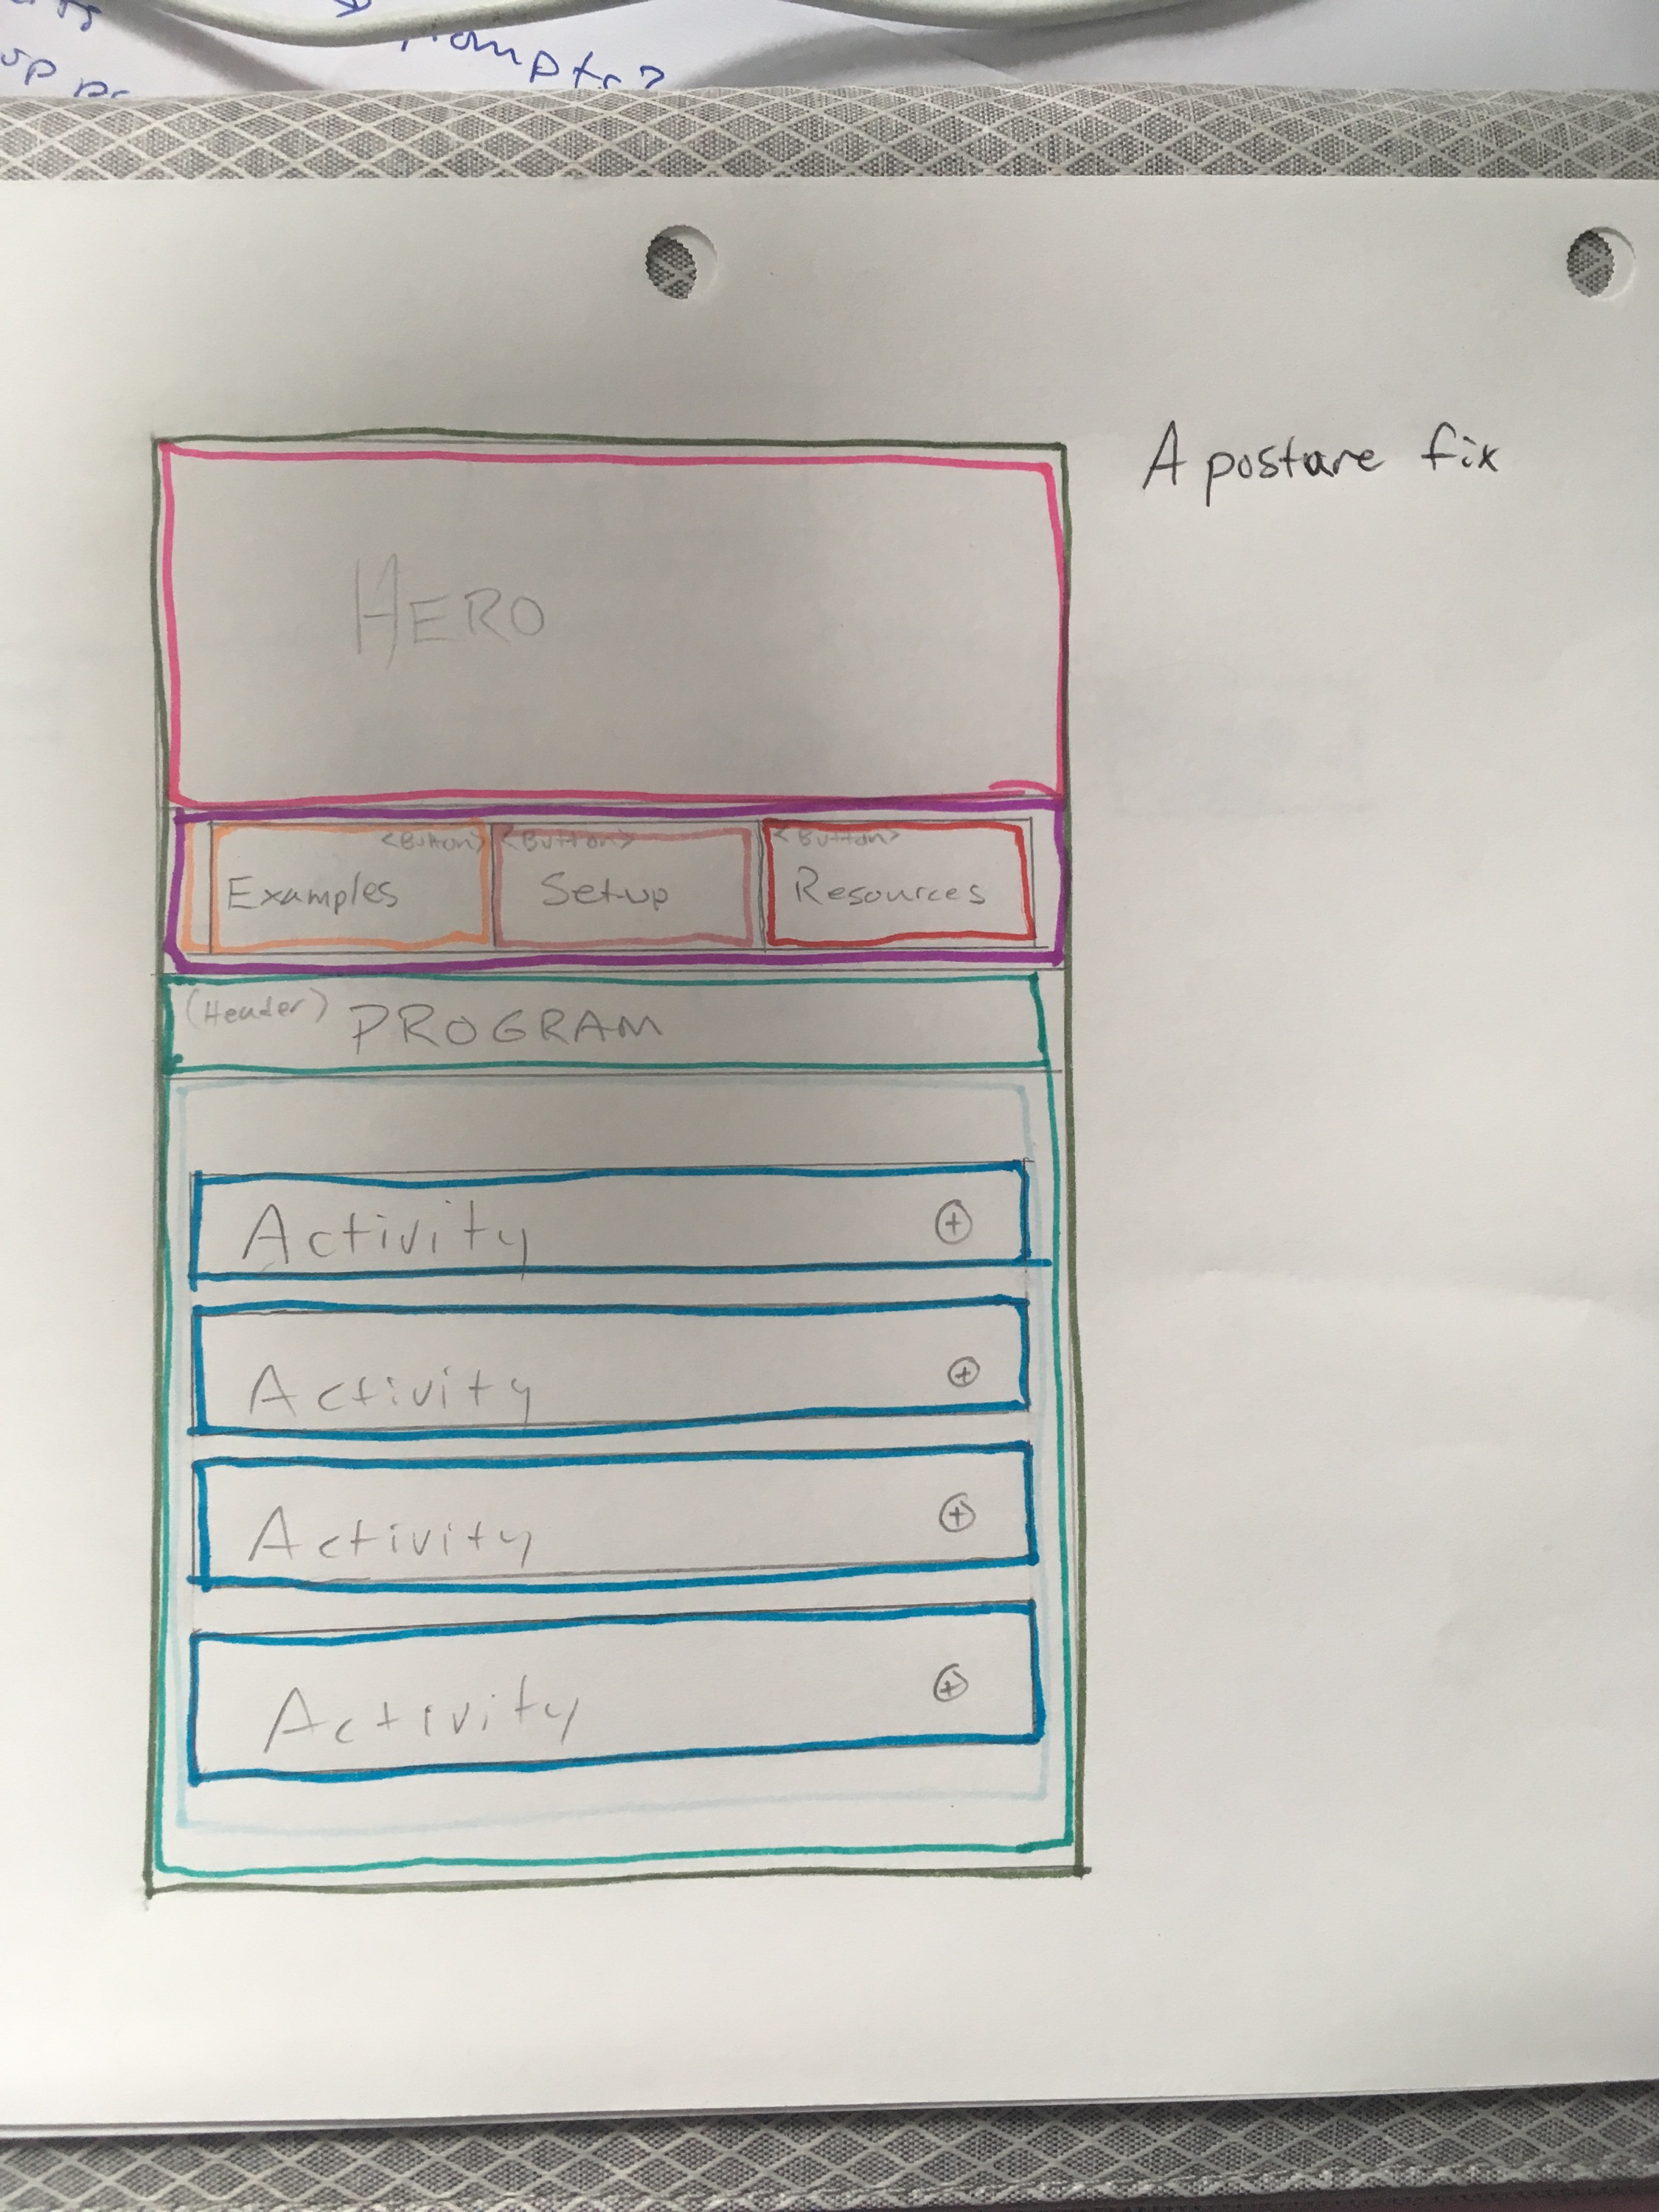 up pr
A posture fix
HERO
<Button> <Button> <Button>
Examples Set-up Resources
(Header) PROGRAM
Activity +
Activity +
Activity +
Activity +